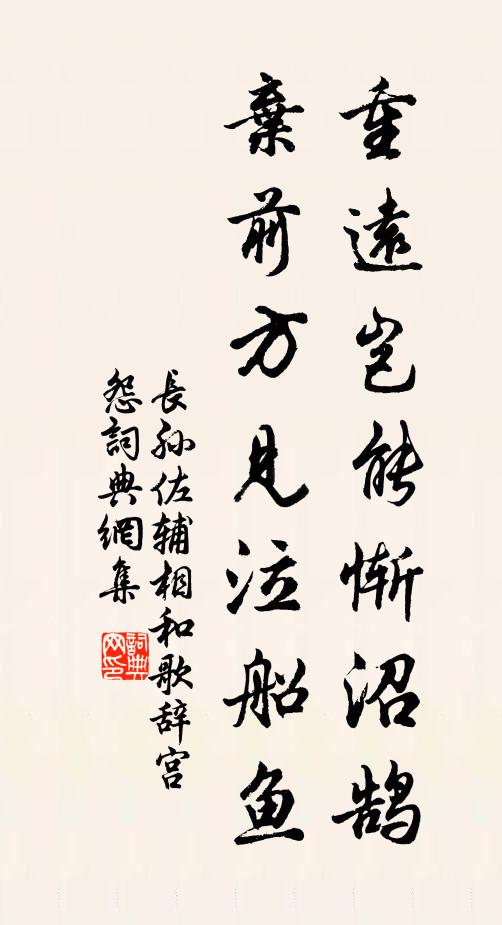 重遠岂能惭沼鹄
棄前方見泣船魚
長孙佐辅相和歌辞宫
怨詞典網集
詞典网印